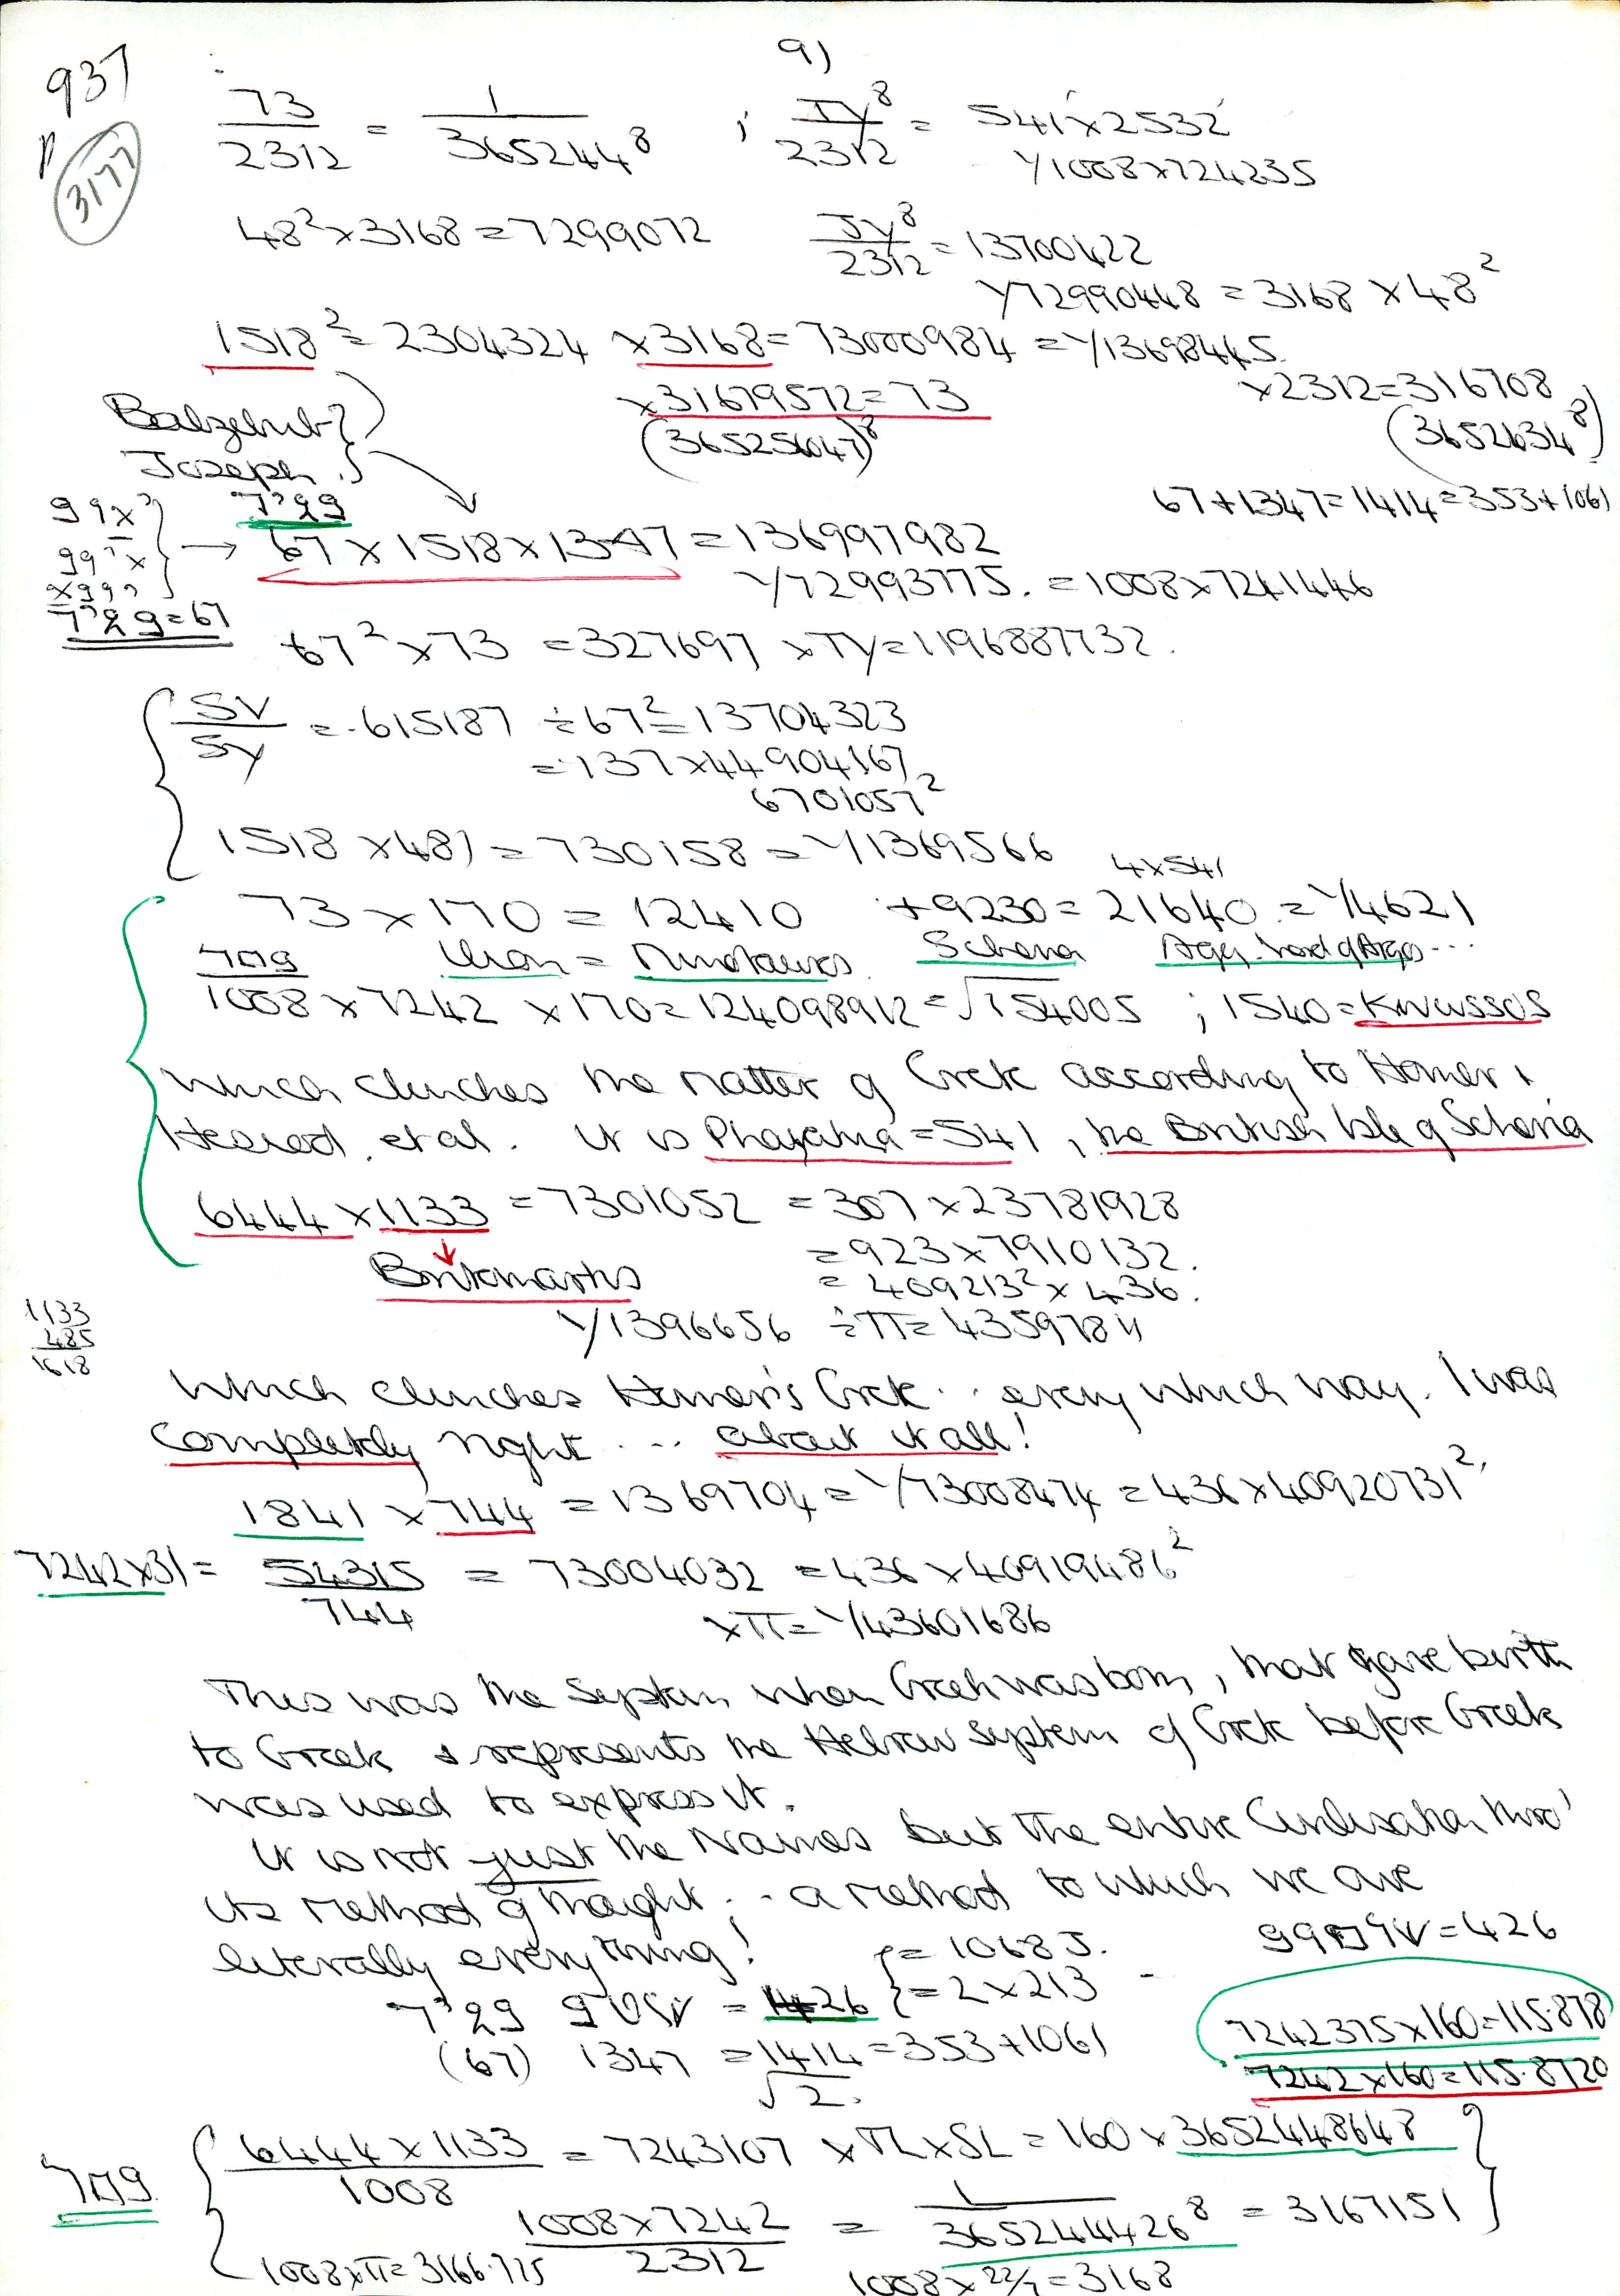 9)
937
P
3177
73/2312 = 1/365244⁸ ; TY⁸/2312 = 541 x 2532
Y1008 x 724235
48² x 3168 = 7299072 JY⁸/2312 = 13700422
Y72990448 = 3168 x 48²
1518² = 2304324 x 3168 = 73000984 = Y13698445
x 31679572 = 73 x 2312 = 316708
(36525647)⁸ (3652634⁸)
Balzebub?
Joseph.
67 + 1347 = 1414 = 353 + 1061
67 x 1518 x 1347 = 136997982
Y72993775. = 1008 x 7241446
= 67
67² x 73 = 327697 x TY = 1196887732.
SV/SY = .615187 ÷ 67² = 13704323
= 137 x 44904167
6701057²
1518 x 481 = 730158 = Y1369566
4 x 541
73 x 170 = 12410 + 9230 = 21640 = Y4621
= Minotauros. Scheria
1008 x 7242 x 170 = 124098912 = √154005 ; 1540 = Knwssos
Which clinches the matter of Crete according to Homer &
Hesiod, et al. It is Phaiakia = 541, the British Isle of Scheria
6444 x 1133 = 7301052 = 307 x 23781928
= 923 x 7910132.
Britomartis = 409213² x 436.
Y1396656 ÷ π = 4359784
1133
485
1618
Which clinches Homer's Crete .. every which way. I was
completely right ... about it all!
1841 x 744 = 1369704 = Y73008474 = 436 x 40920731²
7242 x 31 = 54315/744 = 73004032 = 436 x 40919486²
x π = Y43601686
This was the system when Greek was born, that gave birth
to Greek & represents the Hebrew system of Crete before Greek
was used to express it.
It is not just the Names but the entire Civilisation thro'
its method of thought .. a method to which we are
literally everything!
= 1068 J.
= 426
= 1426 } = 2 x 213
(67) 1347 = 1414 = 353 + 1061
√2.
7242375 x 160 = 115.878
7242 x 160 = 115.8720
6444 x 1133/1008 = 7243107 x TL x SL = 160 x 3652448648
1008 x 7242/2312 = 1/3652444268 = 3167151
1008 x π = 3166.725 1008 x 22/7 = 3168